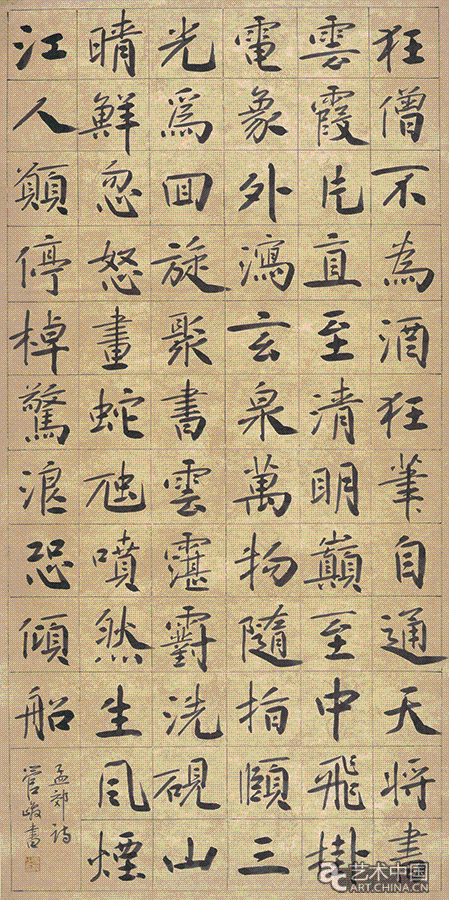 狂僧不為酒狂筆自通天將書
雲霞片直至清明巔至中飛掛
電象外瀉玄泉萬物隨指顧三
光爲回旋聚書雲霮䨴洗硯山
晴鮮忽怒畫蛇虺噴然生風煙
江人願停棹驚浪恐傾船
孟郊詩
管峻書
艺术中国
ART.CHINA.CN